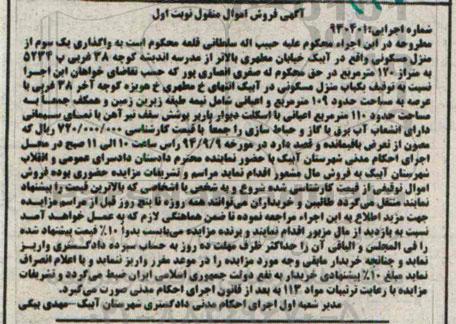 آگهی فروش اموال منقول نوبت اول
شماره اجرایی: ۹۳۰۲۰۱
مطروحه در این اجراء محکوم علیه حبیب اله سلطانی قلعه محکوم است به واگذاری یک سوم از
منزل مسکونی واقع در آبیک خیابان مطهری بالاتر از مدرسه اندیشه کوچه ۳۸ غربی پ ۵۲۳۴
به متراژ ۱۲۰ مترمربع در حق محکوم له صغری انصاری پور که حسب تقاضای خواهان این اجرا
نسبت به توقیف یکباب منزل مسکونی در آبیک انتهای خ مطهری خ هویزه کوچه آخر ۳۸ غربی با
عرصه به مساحت حدود ۱۰۹ مترمربع و اعیانی شامل نیمه طبقه زیرین زمین و همکف جمعاً به
مساحت حدود ۱۱۰ مترمربع اعیانی با اسکلت دیوار باربر پوشش سقف تیر آهن با نمای سیمانی
دارای انشعاب آب برق با گاز و حیاط سازی را جمعاً با قیمت کارشناسی ۷۲۰/۰۰۰/۰۰۰ ریال که
مصون از تعرض باقیمانده و قصد دارد در مورخه ۹۴/۹/۹ راس ساعت ۱۰ الی ۱۱ صبح در محل
اجرای احکام مدنی شهرستان آبیک با حضور نماینده محترم دادستان دادسرای عمومی و انقلاب
شهرستان آبیک به فروش مال مشهور اقدام نماید مراسم و تشریفات مزایده حضوری بوده فروش
اموال توقیفی از قیمت کارشناسی شده شروع و به شخص یا اشخاصی که بالاترین قیمت را پیشنهاد
نمایند منتقل می‌گردد طالبین و خریداران می‌توانند همه روزه تا پنج روز قبل از مراسم مزایده
جهت مزید اطلاع به این اجراء مراجعه نموده تا ضمن هماهنگی لازم که به عمل خواهد آمد
نسبت به بازدید از مال مزبور اقدام نمایند و برنده مزایده می‌بایست بدواً ۱۰٪ قیمت پیشنهاد شده
را فی المجلس و الباقی آن را حداکثر ظرف مهلت ده روز به حساب سپرده دادگستری واریز
نماید و چنانچه خریدار مابقی وجه مورد مزایده را در موعد مقرر واریز ننماید و یا اعلام انصراف
نماید مبلغ ۱۰٪ پیشنهادی خریدار به نفع دولت جمهوری اسلامی ایران ضبط می‌گردد و تشریفات
مزایده با رعایت ترتیبات مواد ۱۱۳ به بعد از قانون اجرای احکام مدنی صورت می‌گیرد.
مدیر شعبه اول اجرای احکام مدنی دادگستری شهرستان آبیک-مهدی بیگی